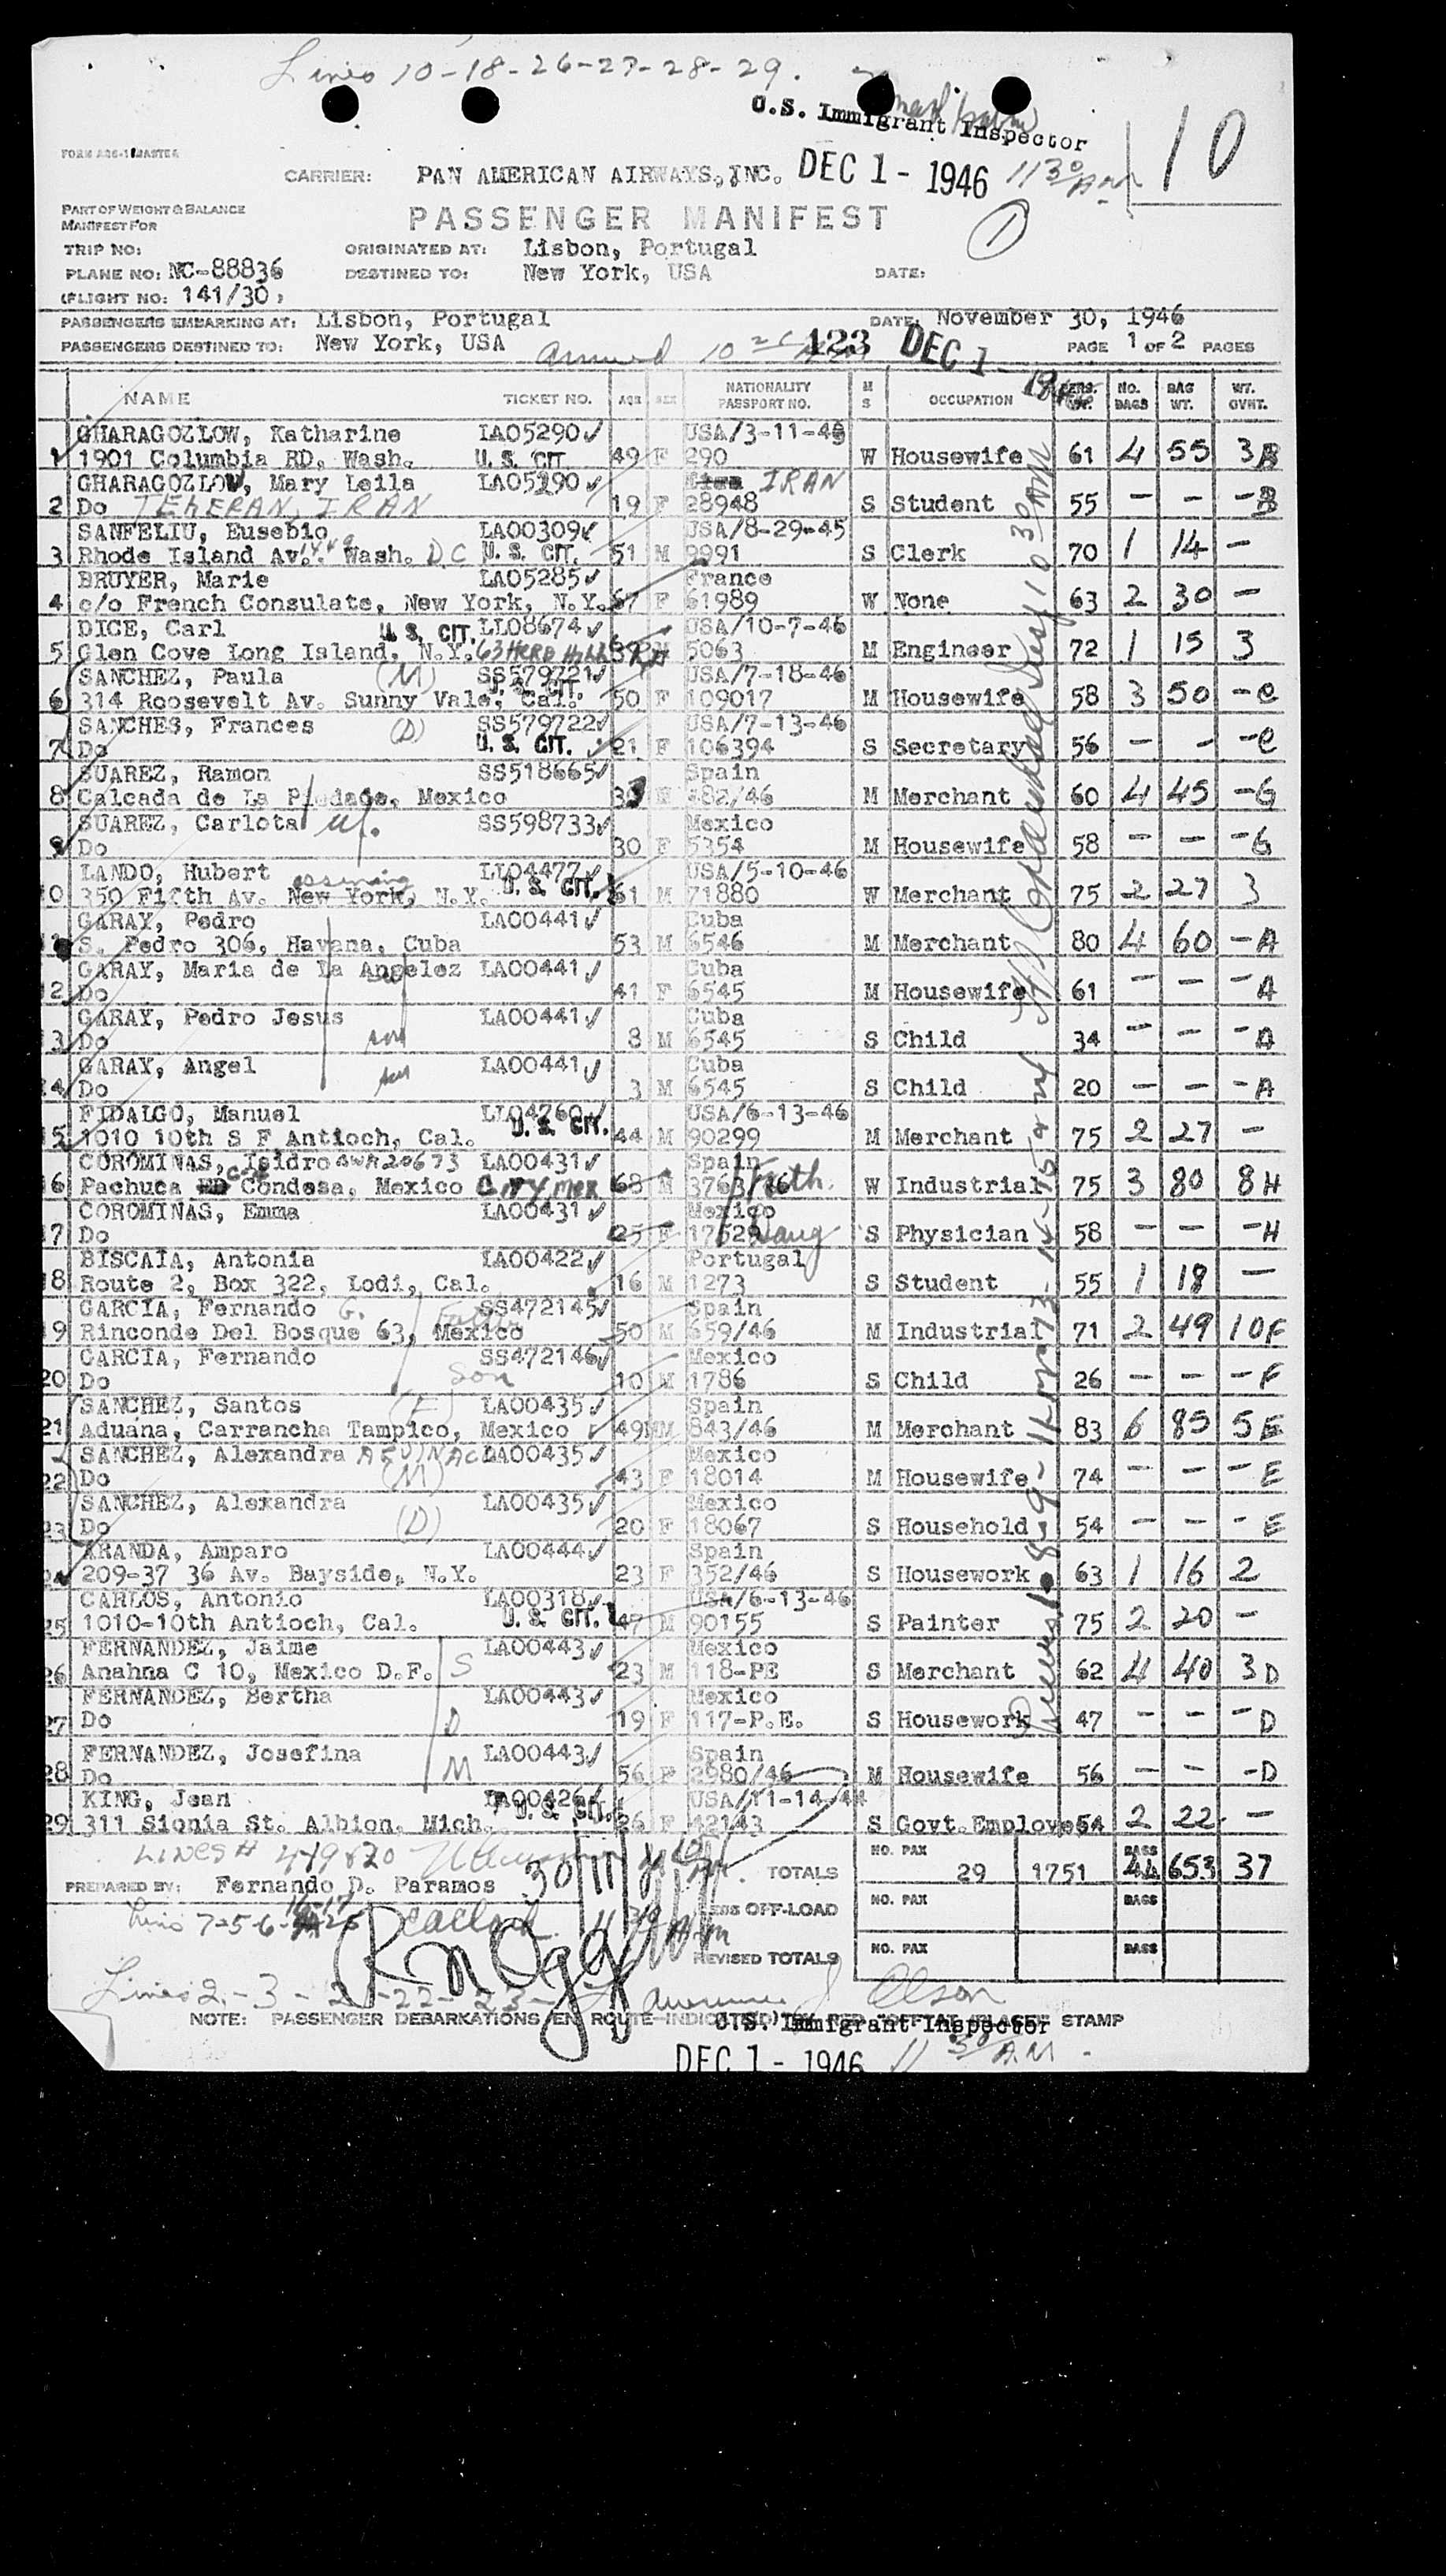 Lines 10-18-26-27-28-29.
U.S. Immigrant Inspector
10
FORM
CARRIER: PAN AMERICAN AIRWAYS, INC. DEC 1 - 1946 11 30 AM
PART OF WEIGHT & BALANCE
MANIFEST FOR
PASSENGER MANIFEST
1
TRIP NO: ORIGINATED AT: Lisbon, Portugal
PLANE NO: NC-88836 DESTINED TO: New York, USA DATE:
(FLIGHT NO: 141/30)
PASSENGERS EMBARKING AT: Lisbon, Portugal DATE: November 30, 1946
PASSENGERS DESTINED TO: New York, USA 123 DEC 1 PAGE 1 OF 2 PAGES
NAME TICKET NO. AGE SEX NATIONALITY PASSPORT NO. M S OCCUPATION PERS. WT. NO. BAGS BAG WT. WT. OVHT.
GHARAGOZLOW, Katharine LA05290 USA/3-11-46
1 1901 Columbia RD, Wash. U.S. CIT 49 F 290 W Housewife 61 4 55 3 B
GHARAGOZLOW, Mary Leila LA05290 IRAN
2 Do TEHERAN, IRAN 19 F 28948 S Student 55 - - - B
SANFELIU, Eusebio LA00309 USA/8-29-45
3 Rhode Island Av. Wash. D C U.S. CIT. 51 M 9991 S Clerk 70 1 14 -
BRUYER, Marie LA05285 France
4 c/o French Consulate, New York, N.Y. 67 F 61989 W None 63 2 30 -
DICE, Carl U.S. CIT. LL08674 USA/10-7-46
5 Glen Cove Long Island, N.Y. 5063 M Engineer 72 1 15 3
SANCHEZ, Paula (M) SS579721 USA/7-18-46
6 314 Roosevelt Av. Sunny Vale, Cal. U.S. CIT. 50 F 109017 M Housewife 58 3 50 - C
SANCHES, Frances (D) SS579722 USA/7-13-46
7 Do U.S. CIT. 21 F 106394 S Secretary 56 - - - C
SUAREZ, Ramon SS518665 Spain
8 Calcada de La Piedade, Mexico M 382/46 M Merchant 60 4 45 - G
SUAREZ, Carlota SS598733 Mexico
9 Do 30 F 5354 M Housewife 58 - - - G
LANDO, Hubert LL04477 USA/5-10-46
10 350 Fifth Av. New York, N.Y. U.S. CIT. 61 M 71880 W Merchant 75 2 27 3
GARAY, Pedro LA00441 Cuba
11 S. Pedro 306, Havana, Cuba 53 M 6546 M Merchant 80 4 60 - A
GARAY, Maria de La Angelez LA00441 Cuba
12 Do 41 F 6545 M Housewife 61 - - - A
GARAY, Pedro Jesus LA00441 Cuba
13 Do son 8 M 6545 S Child 34 - - - A
GARAY, Angel LA00441 Cuba
14 Do son 3 M 6545 S Child 20 - - - A
FIDALGO, Manuel LL04760 USA/6-13-46
15 1010 10th S F Antioch, Cal. U.S. CIT. 44 M 90299 M Merchant 75 2 27 -
COROMINAS, Isidro LA00431 Spain
16 Pachuca Condesa, Mexico City Mex 68 M 3763/46 Fath. W Industrial 75 3 80 8 H
COROMINAS, Emma LA00431 Mexico
17 Do 25 F 17529 Daug S Physician 58 - - - H
BISCAIA, Antonia LA00422 Portugal
18 Route 2, Box 322, Lodi, Cal. 16 M 1273 S Student 55 1 18 -
GARCIA, Fernando G. SS472145 Spain
19 Rinconde Del Bosque 63, Mexico 50 M 659/46 M Industrial 71 2 49 10 F
GARCIA, Fernando SS472146 Mexico
20 Do Son 10 M 1786 S Child 26 - - - F
SANCHEZ, Santos (F) LA00435 Spain
21 Aduana, Carrancha Tampico, Mexico 49 M 843/46 M Merchant 83 6 85 5 E
SANCHEZ, Alexandra LA00435 Mexico
22 Do (M) 43 F 18014 M Housewife 74 - - - E
SANCHEZ, Alexandra LA00435 Mexico
23 Do (D) 20 F 18067 S Household 54 - - - E
ARANDA, Amparo LA00444 Spain
24 209-37 36 Av. Bayside, N.Y. 23 F 352/46 S Housework 63 1 16 2
CARLOS, Antonio LA00318 USA/6-13-46
25 1010-10th Antioch, Cal. U.S. CIT. 47 M 90155 S Painter 75 2 20 -
FERNANDEZ, Jaime LA00443 Mexico
26 Anahna C 10, Mexico D.F. S 23 M 118-PE S Merchant 62 4 40 3 D
FERNANDEZ, Bertha LA00443 Mexico
27 Do D 19 F 117-P.E. S Housework 47 - - - D
FERNANDEZ, Josefina LA00443 Spain
28 Do M 56 F 2980/46 M Housewife 56 - - - D
KING, Jean LA00426 USA/11-14-44
29 311 Sionia St. Albion, Mich. U.S. CIT. 26 F 42143 S Govt. Employee 54 2 22 -
LINES # 4-19 & 20
TOTALS NO. PAX 29 1751 BAGS 44 653 37
PREPARED BY: Fernando D. Paramos 30/11/46
LESS OFF-LOAD NO. PAX BAGS
REVISED TOTALS NO. PAX BAGS
Olson
NOTE: PASSENGER DEBARKATIONS EN ROUTE INDICATED BY RED "OFF AT (PLACE)" STAMP
U.S. Immigrant Inspector
DEC 1 - 1946 11 30 A.M.